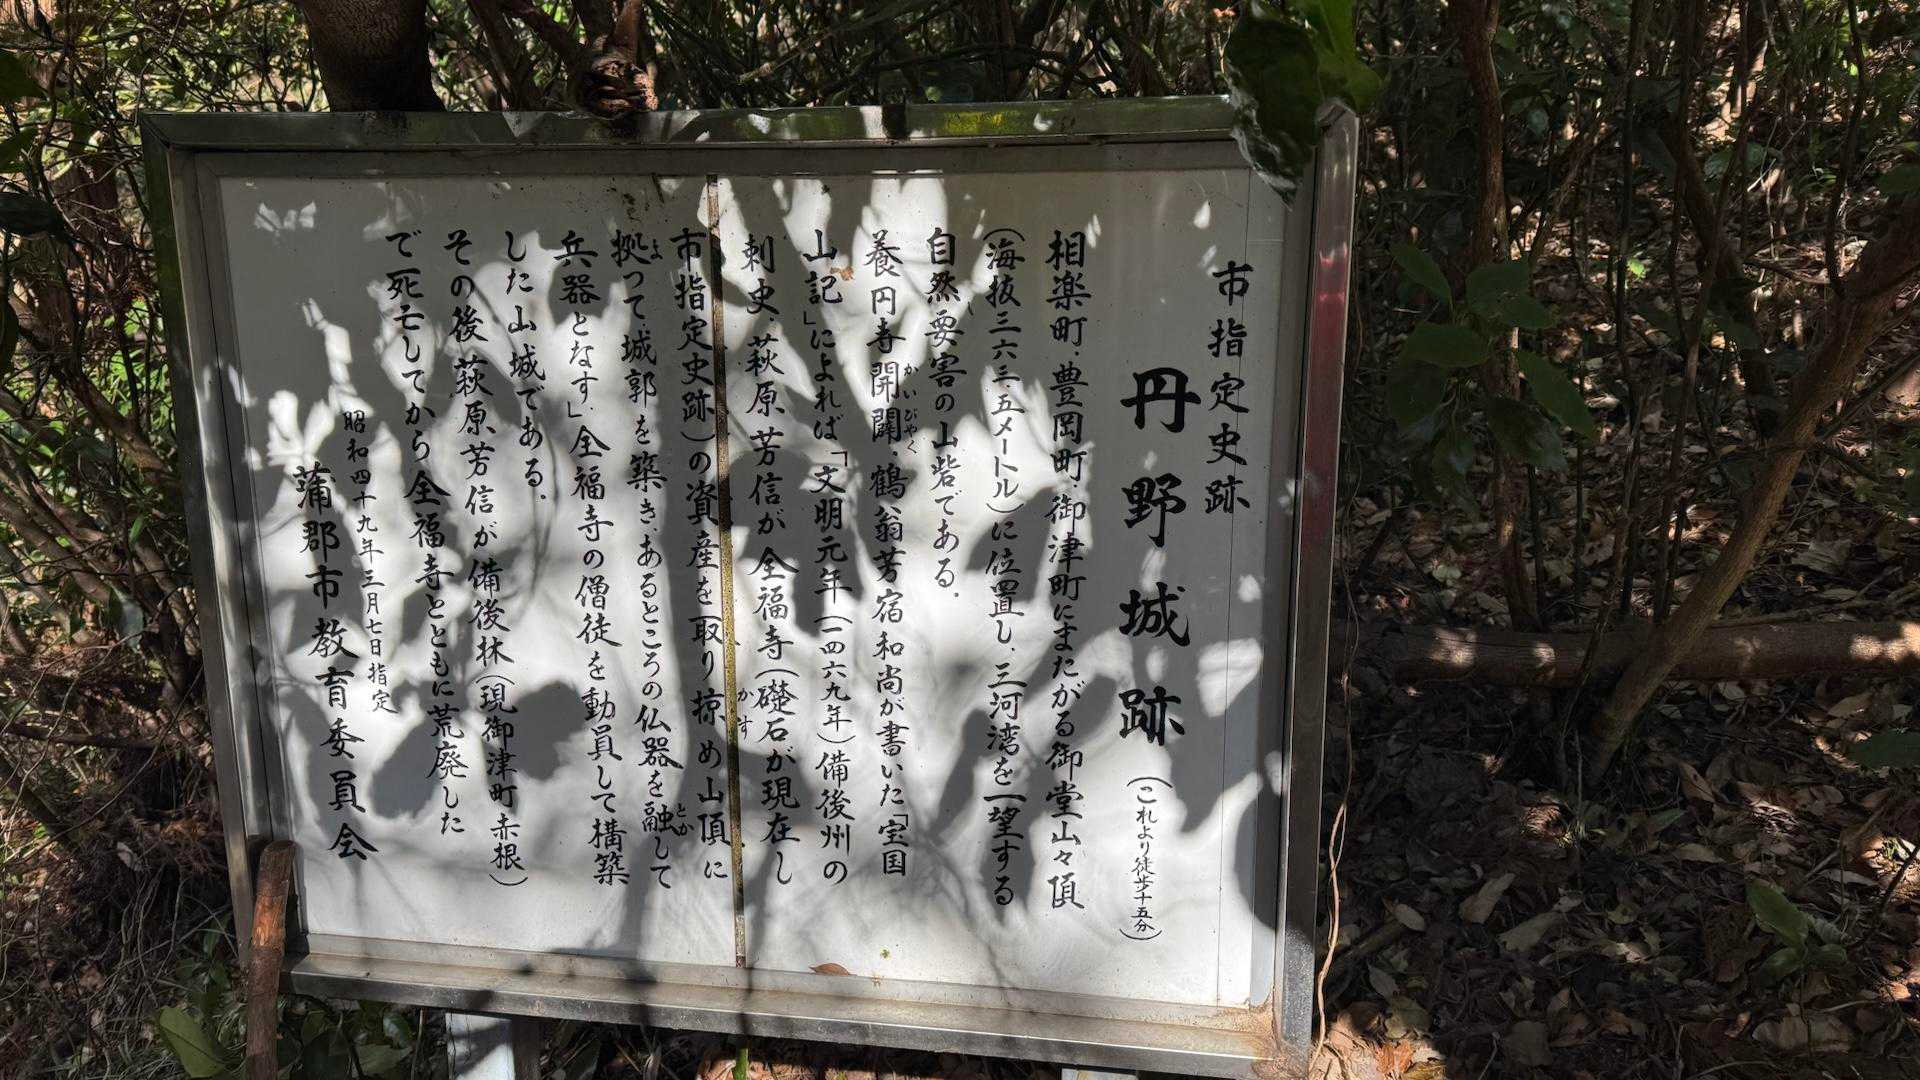 市指定史跡
丹野城跡 (これより徒歩十五分)
相楽町・豊岡町・御津町にまたがる御堂山々頂
(海抜三六三・五メートル)に位置し、三河湾を一望する
自然要害の山砦である。
養円寺開闢・鶴翁芳宿和尚が書いた「宝国
かいびゃく
山記」によれば「文明元年(一四六九年)備後州の
刺史 萩原芳信が全福寺(礎石が現在し
市指定史跡)の資産を取り掠め山頂に
かす
拠って城郭を築き、あるところの仏器を融して
よ
とか
兵器となす」全福寺の僧徒を動員して構築
した山城である。
その後萩原芳信が備後林(現御津町赤根)
で死亡してから全福寺とともに荒廃した
昭和四十九年三月七日指定
蒲郡市教育委員会